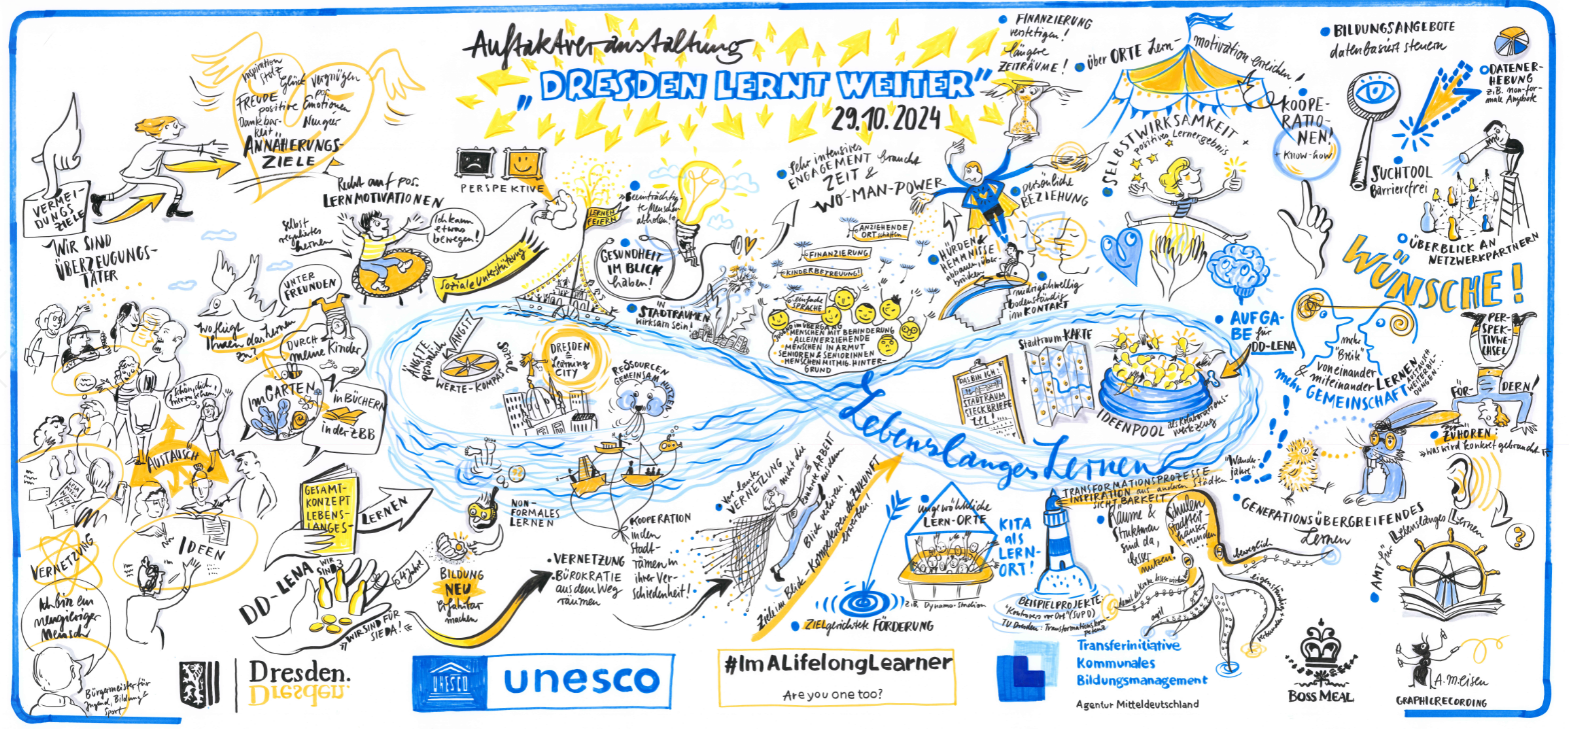 Auftaktveranstaltung
„DRESDEN LERNT WEITER"
29.10.2024
Inspiration
Stolz
Glück
Vergnügen
FREUDE
pos.
positive Emotionen
Dankbar-
keit
Neugier
ANNÄHERUNGS-
ZIELE
VERMEI-
DUNGS-
ZIELE
WIR SIND
ÜBERZEUGUNGS-
TÄTER
Recht auf pos.
LERNMOTIVATIONEN
selbst
reguliertes
Lernen
Ich kann
etwas
bewegen!
soziale Unterstützung
PERSPEKTIVE
LERNEN
FEIERN
Beeinträchtig-
te Menschen
abholen!
GESUNDHEIT
IM BLICK
haben!
IN
STADTRÄUMEN
wirksam sein!
sehr intensives
ENGAGEMENT braucht
ZEIT &
WO-MAN-POWER
ANZIEHENDE
ORTschaften
FINANZIERUNG!
KINDERBETREUUNG!
einfache
SPRACHE
MENSCHEN MIT BEHINDERUNG
ALLEINERZIEHENDE
MENSCHEN IN ARMUT
SENIOREN & SENIORINNEN
MENSCHEN MIT MIG. HINTER-
GRUND
FINANZIERUNG
verstetigen!
längere
ZEITRÄUME!
über ORTE Lern-
motivation erreichen!
persönliche
BEZIEHUNG
HÜRDEN &
HEMMNISSE
niedrigschwellig
bodenständig
im KONTAKT
SELBSTWIRKSAMKEIT
positives Lernergebnis
KOOPE-
RATIO-
NEN!
+ KNOW-HOW
BILDUNGSANGEBOTE
datenbasiert steuern
DATENER-
HEBUNG
z.B. non-for-
male Angebote
SUCHTOOL
barrierefrei
ÜBERBLICK AN
NETZWERKPARTNERN
WÜNSCHE!
UNTER
FREUNDEN
wo fliegt
Ihnen das Lernen
zu?
DURCH
meine Kinder
im GARTEN
in BÜCHERN
in der ZBB
AUSTAUSCH
IDEEN
VERNETZUNG
Ich bin ein
neugieriger
Mensch
Bürgermeister für
Jugend, Bildung &
Sport
ÄNGSTE
persönlich
KANGST?
WERTE-KOMPASS
sozial
DRESDEN
=
Learning
CITY
RESSOURCEN
GEMEINSAM NUTZEN
Lebenslanges Lernen
Stadtraum KARTE
DAS BIN ICH:
STADTRAUM
STECKBRIEFE
+
IDEENPOOL
als Kollaborations-
werkzeug
AUFGA-
BE für
DD-LENA
mehr
"Brücke"
voneinander
& miteinander LERNEN
mehr GEMEINSCHAFT
PER-
SPEK-
TIVWE-
CHSEL
FÖR-
DERN!
ZUHÖREN:
was wird konkret gebraucht
"Wander-
jahre"
GENERATIONSÜBERGREIFENDES
Lernen
AMT für Lebenslanges Lernen
?
GESAMT-
KONZEPT
LEBENS-
LANGES-
LERNEN
DD-LENA
WIR
SIND 3
4 Jahre!
WIR SIND FÜR
SIE DA!
NON-
FORMALES
LERNEN
BILDUNG
NEU
erfahrbar
machen
VERNETZUNG
BÜROKRATIE
aus dem Weg
räumen
KOOPERATION
in den
Stadt-
räumen in
ihrer Ver-
schiedenheit!
vor lauter
VERNETZUNG nicht die
konkrete ARBEIT
aus dem
Blick verlieren!
Ziel im Blick - Kompetenzen der ZUKUNFT
erwerben!
ZIELgerichtete FÖRDERUNG
ungewöhnliche
LERN-ORTE
z.B. Dynamo-Stadion
KITA
als
LERN-
ORT!
TRANSFORMATIONSPROZESSE
INSPIRATION aus anderen Städten
SICHTBARKEIT
Räume &
Strukturen
sind da,
besser
nutzen
Schulen
beweglich
BEISPIELPROJEKTE
Dresden.
Dresden.
UNESCO
unesco
#ImALifelongLearner
Are you one too?
Transferinitiative
Kommunales
Bildungsmanagement
Agentur Mitteldeutschland
BOSS MEAL
A.M.Eisen
GRAPHICRECORDING